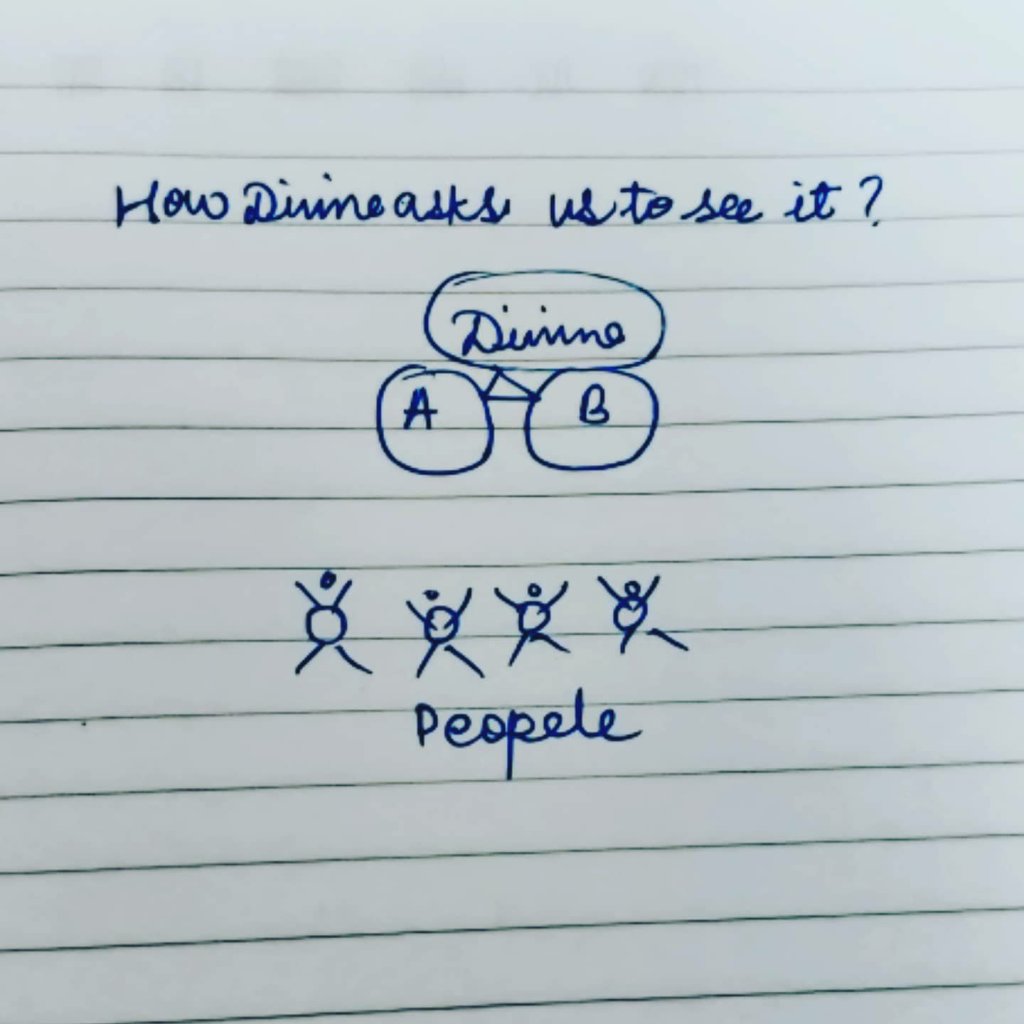 How Divine asks us to see it?
Divine
A B
Peopele